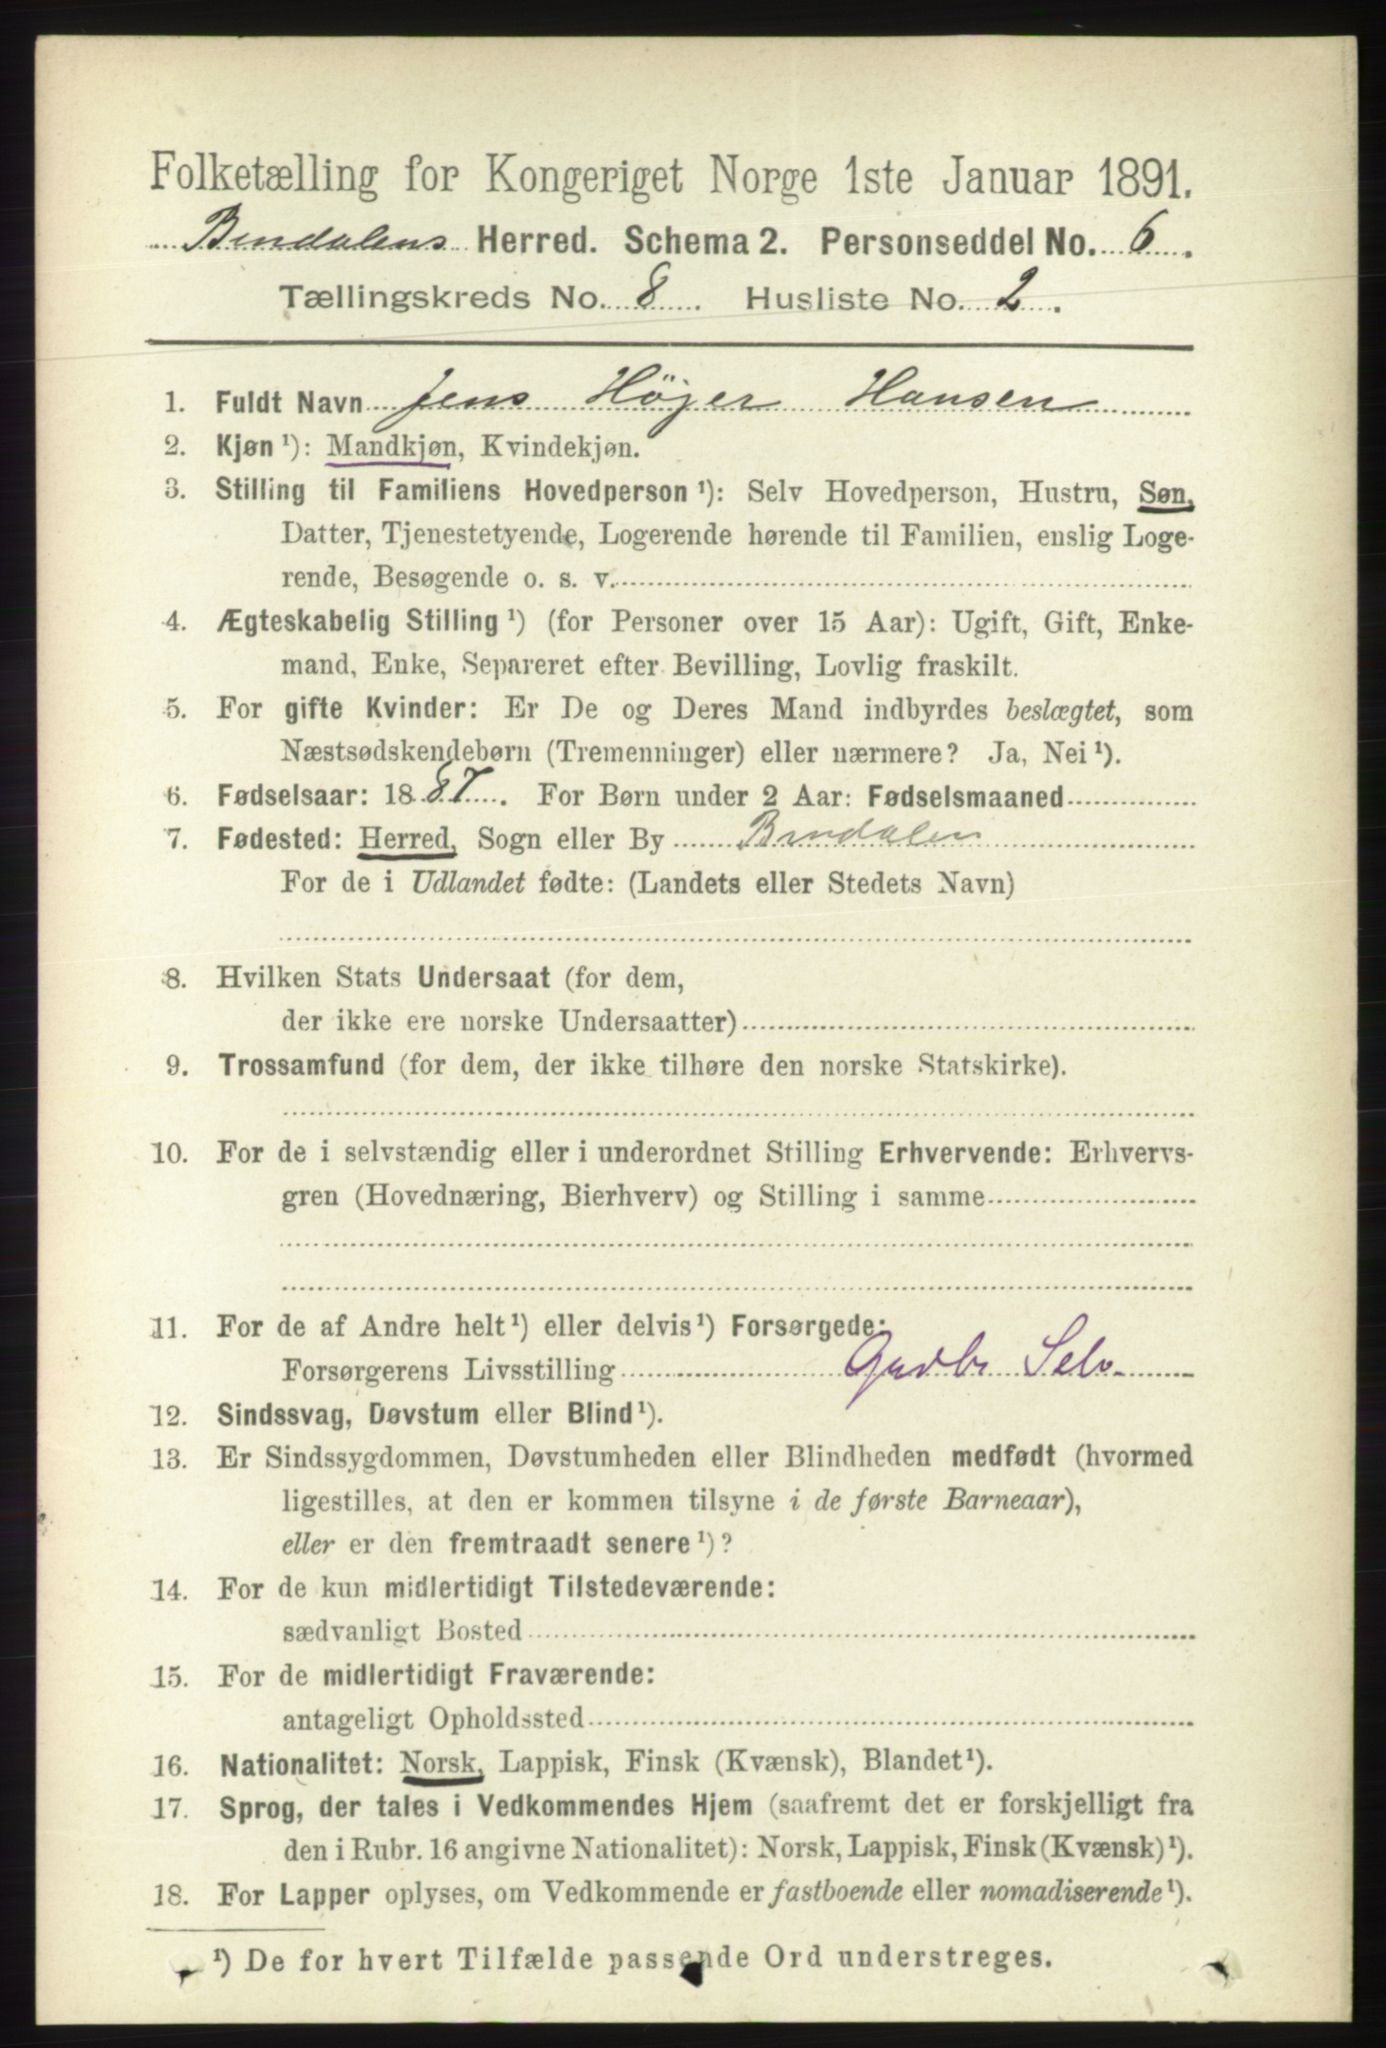 Folketælling for Kongeriget Norge 1ste Januar 1891.
Bindalens Herred. Schema 2. Personseddel No. 6.
Tællingskreds No. 8. Husliste No. 2.
1. Fuldt Navn Jens Höjer Hansen
2. Kjøn ¹): Mandkjøn, Kvindekjøn.
3. Stilling til Familiens Hovedperson ¹): Selv Hovedperson, Hustru, Søn,
Datter, Tjenestetyende, Logerende hørende til Familien, enslig Loge-
rende, Besøgende o. s. v.
4. Ægteskabelig Stilling ¹) (for Personer over 15 Aar): Ugift, Gift, Enke-
mand, Enke, Separeret efter Bevilling, Lovlig fraskilt.
5. For gifte Kvinder: Er De og Deres Mand indbyrdes beslægtet, som
Næstsødskendebørn (Tremenninger) eller nærmere? Ja, Nei ¹).
6. Fødselsaar: 1887. For Børn under 2 Aar: Fødselsmaaned
7. Fødested: Herred, Sogn eller By Bindalen
For de i Udlandet fødte: (Landets eller Stedets Navn)
8. Hvilken Stats Undersaat (for dem,
der ikke ere norske Undersaatter)
9. Trossamfund (for dem, der ikke tilhøre den norske Statskirke).
10. For de i selvstændig eller i underordnet Stilling Erhvervende: Erhvervs-
gren (Hovednæring, Bierhverv) og Stilling i samme
11. For de af Andre helt ¹) eller delvis ¹) Forsørgede:
Forsørgerens Livsstilling Gaardbr Selv
12. Sindssvag, Døvstum eller Blind ¹).
13. Er Sindssygdommen, Døvstumheden eller Blindheden medfødt (hvormed
ligestilles, at den er kommen tilsyne i de første Barneaar),
eller er den fremtraadt senere ¹)?
14. For de kun midlertidigt Tilstedeværende:
sædvanligt Bosted
15. For de midlertidigt Fraværende:
antageligt Opholdssted
16. Nationalitet: Norsk, Lappisk, Finsk (Kvænsk), Blandet ¹).
17. Sprog, der tales i Vedkommendes Hjem (saafremt det er forskjelligt fra
den i Rubr. 16 angivne Nationalitet): Norsk, Lappisk, Finsk (Kvænsk) ¹).
18. For Lapper oplyses, om Vedkommende er fastboende eller nomadiserende ¹).
¹) De for hvert Tilfælde passende Ord understreges.